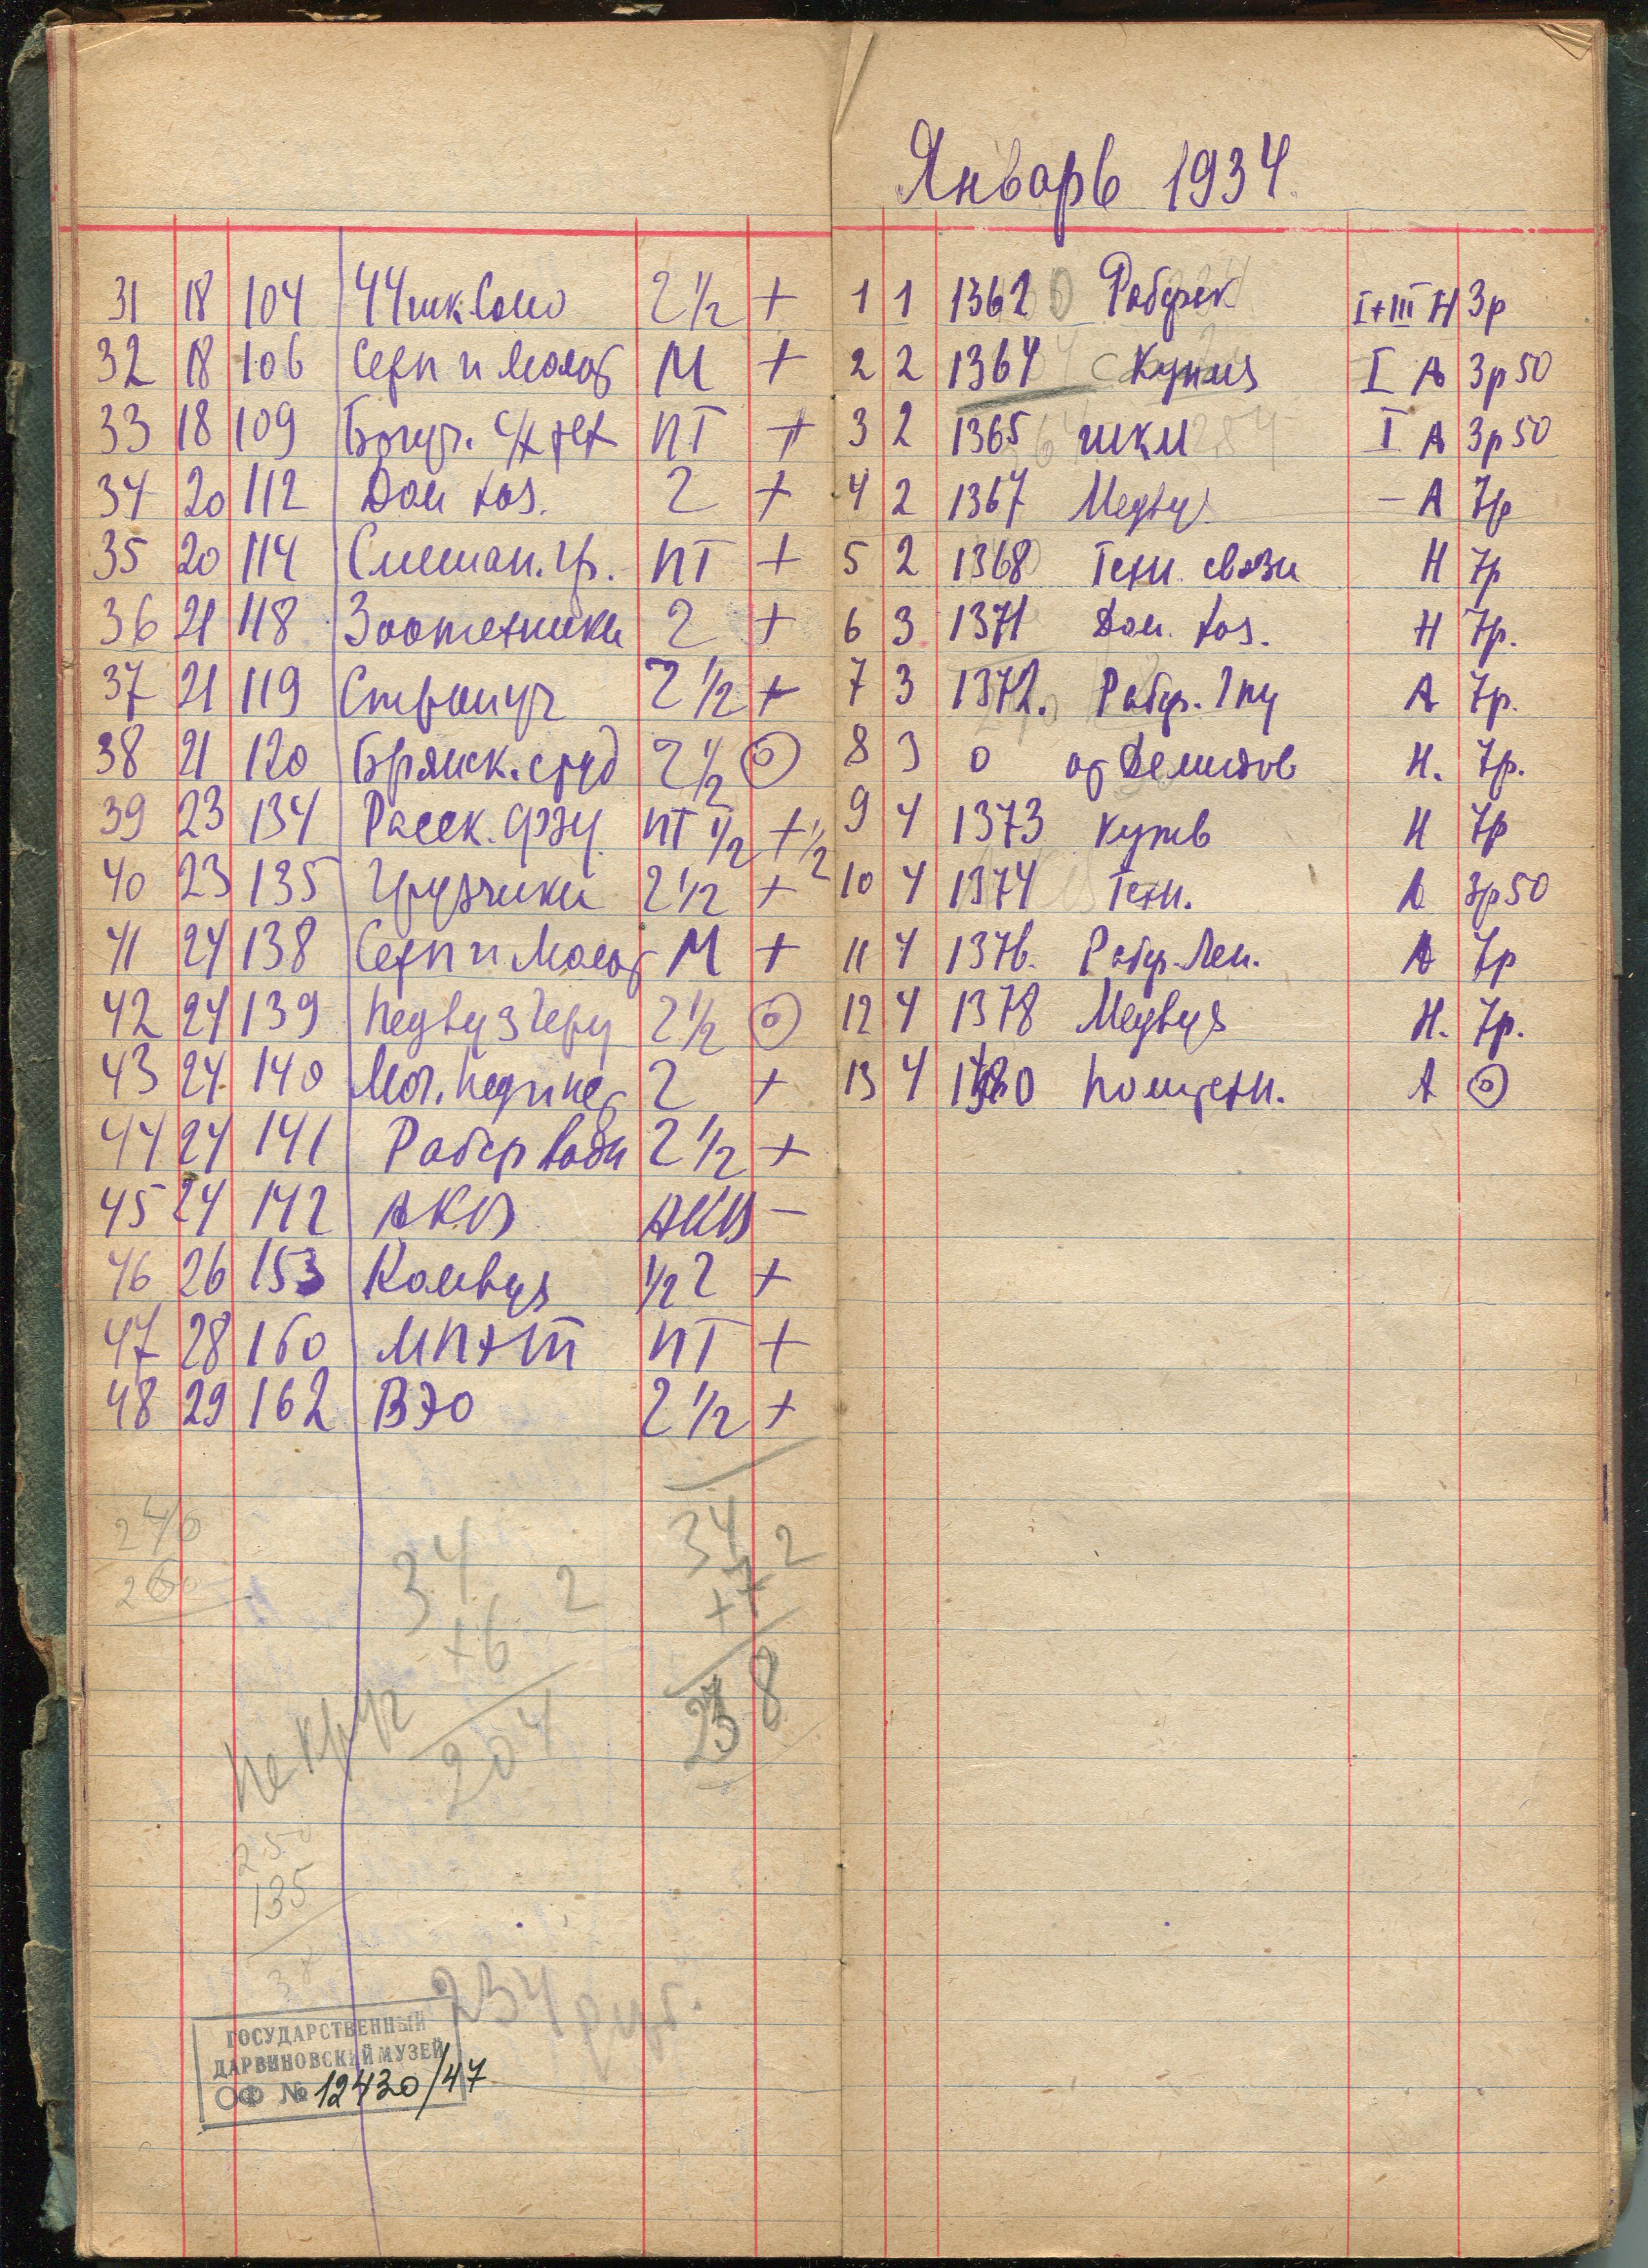 31 18 104 44 шк. Соно 2 ½ +
32 18 106 Серп и Молот М +
33 18 109 Богуч. с/х тех ПТ +
34 20 112 Дом хоз. 2 +
35 20 114 Смешан. гр. ПТ +
36 21 118 Зоотехники 2 +
37 21 119 2 ½ +
38 21 120 Брянск. студ 2 ½ ⊙
39 23 134 Расск. ФЗУ ПТ ½ + ½
40 23 135 Грузчики 2 ½ +
41 24 138 Серп и Молот М +
42 24 139 Педвуз 2 ½ ⊙
43 24 140 2 +
44 24 141 2 ½ +
45 24 142 АКВ АКВ –
46 26 153 Комвуз ½ 2 +
47 28 160 ПТ +
48 29 162 ВЭО 2 ½ +
240
260
34 2
+6
204
34 2
+7
238
не круг
250
135
234 руб.
ГОСУДАРСТВЕННЫЙ
ДАРВИНОВСКИЙ МУЗЕЙ
ОФ № 12430/47
Январь 1934.
1 1 1362 Рабфак I+III Н 3р
2 2 1364 I А 3р 50
3 2 1365 ШКМ I А 3р 50
4 2 1367 Медвуз – А 7р
5 2 1368 Техн. связи Н 7р
6 3 1371 Дом. хоз. Н 7р.
7 3 1372. Рабф. А 7р.
8 3 0 от Демидов Н. 7р.
9 4 1373 Кутв Н 7р
10 4 1374 Техн. А 3р 50
11 4 1376. Рабф. Лен. А 7р
12 4 1378 Медвуз Н. 7р.
13 4 1380 Политехн. А ⊙